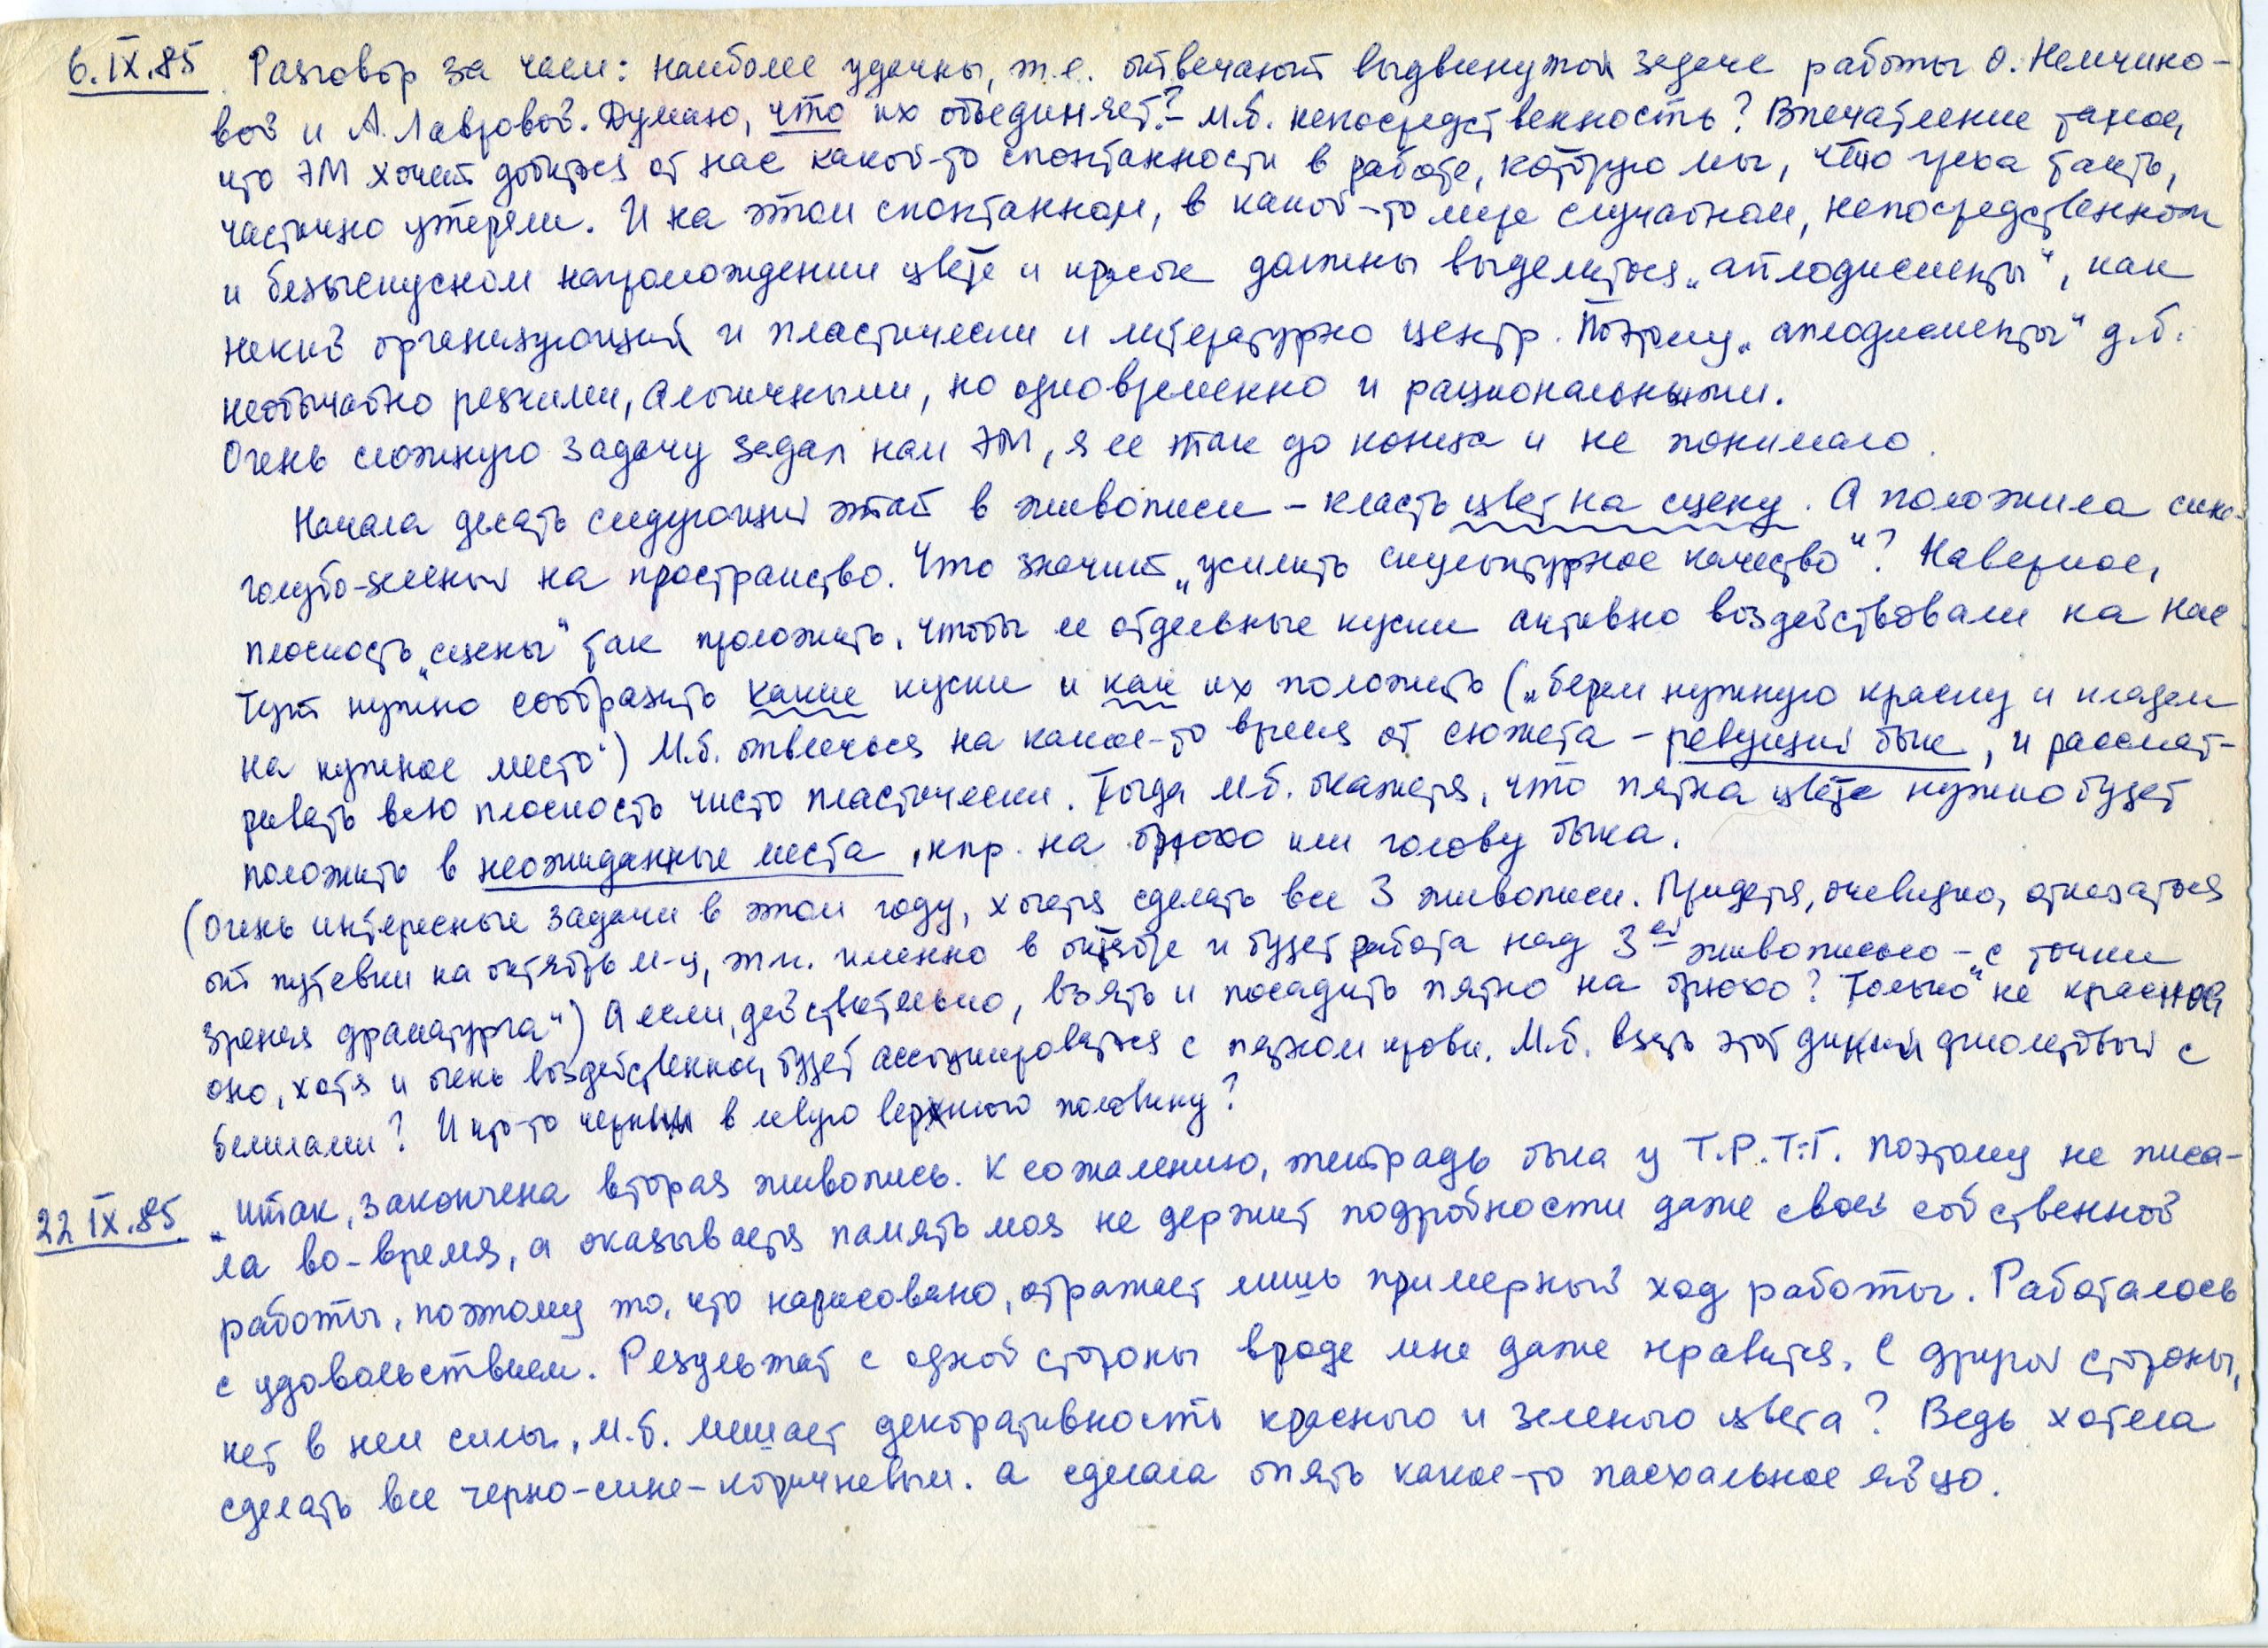 6.IX.85 Разговор за чаем: наиболее удачны, т.е. отвечают выдвинутой задаче работы О. Немчино-
вой и А. Лавровой. Думаю, что их объединяет? – М.б. непосредственность? Впечатление такое,
что ЭМ хочет добиться от нас какой-то спонтанности в работе, которую мы, что греха таить,
частично утеряли. И на этом спонтанном, в какой-то мере случайном, непосредственном
и безыскусном нагромождении цвета и красок должны выделиться „аплодисменты", как
некий организующий и пластически и литературно центр. Поэтому „аплодисменты" д.б.
необычайно резкими, алогичными, но одновременно и рациональными.
Очень сложную задачу задал нам ЭМ, я ее так до конца и не понимаю.
Начала делать следующий этап в живописи – класть цвет на сцену. А положила сине-
голубо-зеленый на пространство. Что значит „усилить скульптурное качество"? Наверное,
плоскость „сцены" так проложить, чтобы ее отдельные куски активно воздействовали на нас.
Тут нужно сообразить какие куски и как их положить („берем нужную краску и кладем
на нужное место") М.б. отвлечься на какое-то время от сюжета – ревущий бык, и рассмат-
ривать всю плоскость чисто пластически. Тогда м.б. окажется, что пятна цвета нужно будет
положить в неожиданные места, нпр. на брюхо или голову быка.
(Очень интересные задачи в этом году, хочется сделать все 3 живописи. Придется, очевидно, отказаться
от путевки на октябрь м-ц, т.к. именно в октябре и будет работа над 3ей живописью – с точки
зрения драматурга") А если, действительно, взять и посадить пятно на брюхо? Только не красное
оно, хотя и очень воздейственное, будет ассоциироваться с пятном крови. М.б. взять этот дикий фиолетовый с
белилами? И что-то черным в левую верхнюю половину?
22 IX.85. „Итак, закончена вторая живопись. К сожалению, тетрадь была у Т.Р.Т.-Г. Поэтому не писа-
ла во-время, а оказывается память моя не держит подробности даже своей собственной
работы, поэтому то, что нарисовано, отражает лишь примерный ход работы. Работалось
с удовольствием. Результат с одной стороны вроде мне даже нравится. С другой стороны,
нет в нем силы, м.б. мешает декоративность красного и зеленого цвета? Ведь хотела
сделать все черно-сине-коричневым. а сделала опять какое-то пасхальное яйцо.